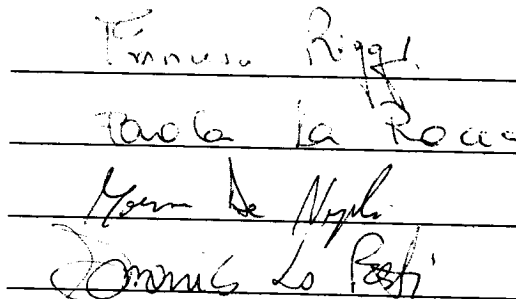 Francesco Riggi
Paola La Rocca
De Napoli
Domenico Lo Presti